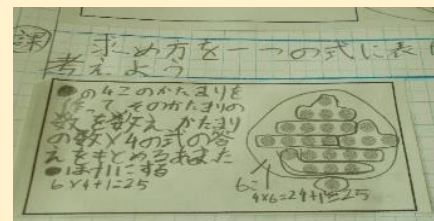 課 求め方を一つの式に表し
考えよう
●の4このかたまりを
作って そのかたまりの
数を数え かたまり
の数×4の式の答
えをもとめる あまった
●はたすにする
6×4+1=25
6こ
4×6=24+1=25